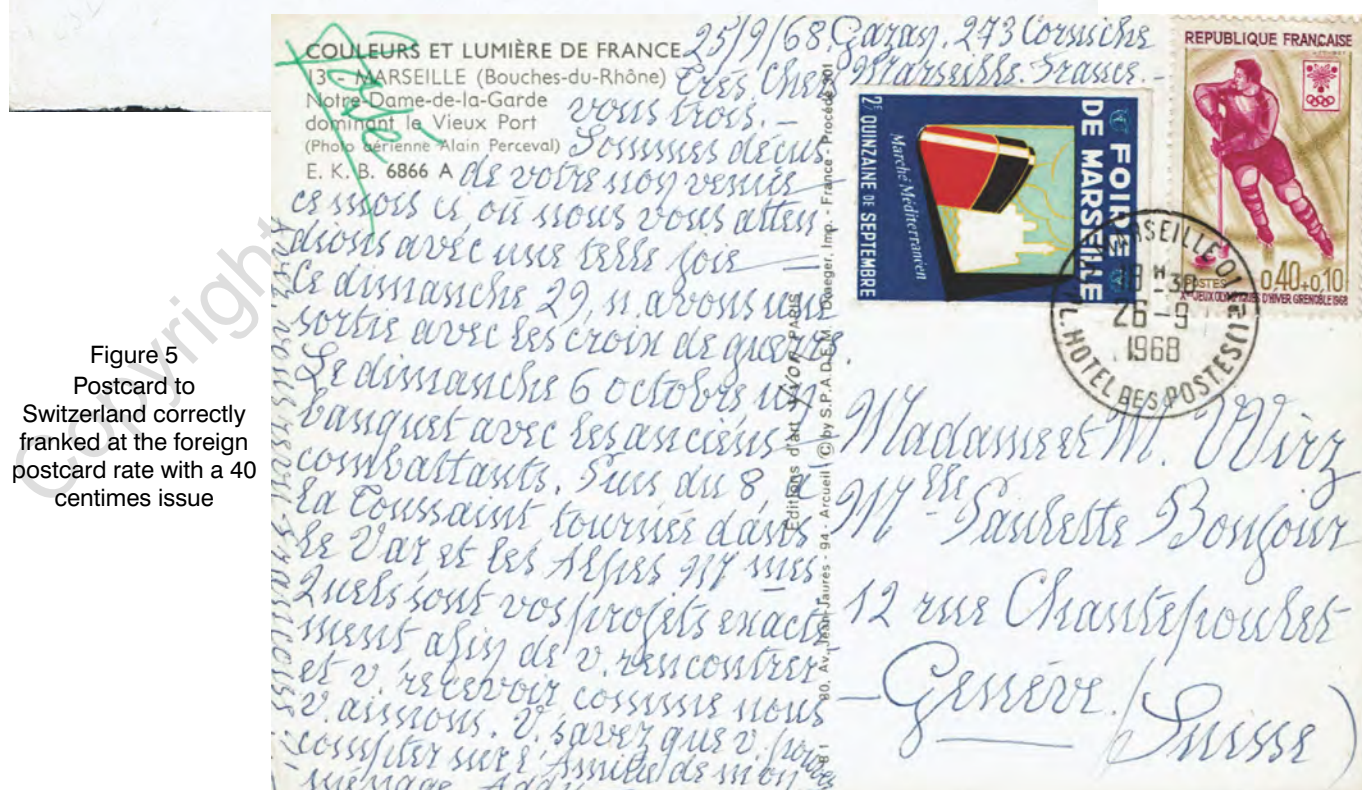 Copyright
Figure 5
Postcard to
Switzerland correctly
franked at the foreign
postcard rate with a 40
centimes issue
COULEURS ET LUMIÈRE DE FRANCE
13 - MARSEILLE (Bouches-du-Rhône)
Notre-Dame-de-la-Garde
dominant le Vieux Port
(Photo aérienne Alain Perceval)
E. K. B. 6866 A
25/9/68. Garay. 273 Corniche
Marseille. France. -
Très Chers
vous trois. -
Sommes déçus
de votre non venue
ce mois ci où nous vous atten
dions avec une telle joie -
Ce dimanche 29, n avons une
sortie avec les croix de guerre.
Le dimanche 6 octobre un
banquet avec les anciens
combattants. Puis du 8, à
la Toussaint tournée dans
le Var et les Alpes Mmes
Quels sont vos projets exacte
ment afin de v. rencontrer
et v. recevoir comme nous
v. aimons. V. savez que v. pouvez
compter sur l'Amitié de mon
ménage.
Editions d'art YVON PARIS
80, Av. Jean-Jaurès - 94 - Arcueil © by S.P.A.D.E.M. Draeger, Imp. - France - Procédé 301
FOIRE
DE MARSEILLE
Marché Méditerranéen
2E QUINZAINE DE SEPTEMBRE
REPUBLIQUE FRANÇAISE
POSTES 0,40+0,10
XES JEUX OLYMPIQUES D'HIVER GRENOBLE 1968
MARSEILLE 01
18 H -30
26 - 9
1968
HOTEL DES POSTES
Madame et M. Wirz
Mlle Paulette Bonjour
12 rue Chantepoulet
- Genève. (Suisse)